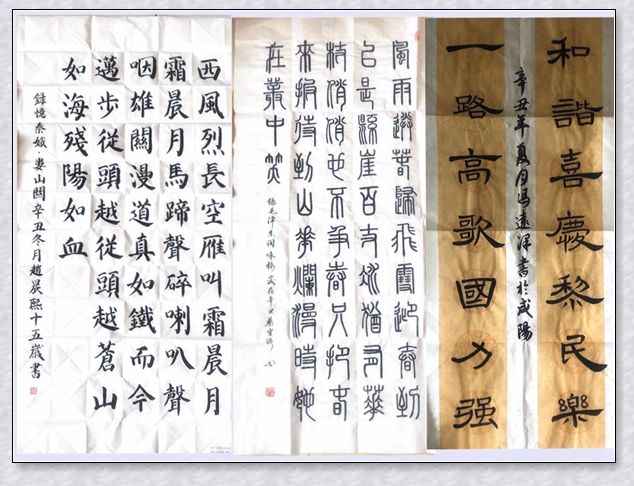 西風烈長空雁叫霜晨月
霜晨月馬蹄聲碎喇叭聲
咽雄關漫道真如鐵而今
邁步從頭越從頭越蒼山
如海殘陽如血
錄憶秦娥·婁山關辛丑冬月趙晨熙十五歲書
風雨送春歸飛雪迎春到
已是懸崖百丈冰猶有華
枝俏俏也不爭春只把春
來報待到山華爛漫時她
在叢中笑
錄毛澤東詞詠梅歲在辛丑
和諧喜慶黎民樂
辛丑年夏月馮遠洋書於咸陽
一路高歌國力强